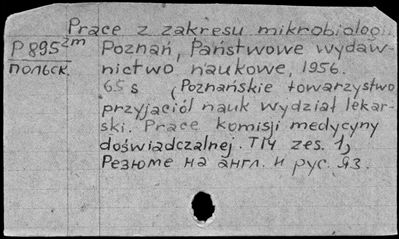 Prace z zakresu mikrobiolog...
P 895 2m Poznań, Państwowe wydaw-
польск. nictwo naukowe, 1956.
65 s (Poznańskie towarzystwo
przyjaciół nauk wydział lekar-
ski. Prace komisji medycyny
doświadczalnej. T14 zes. 1)
Резюме на англ. и рус. яз.